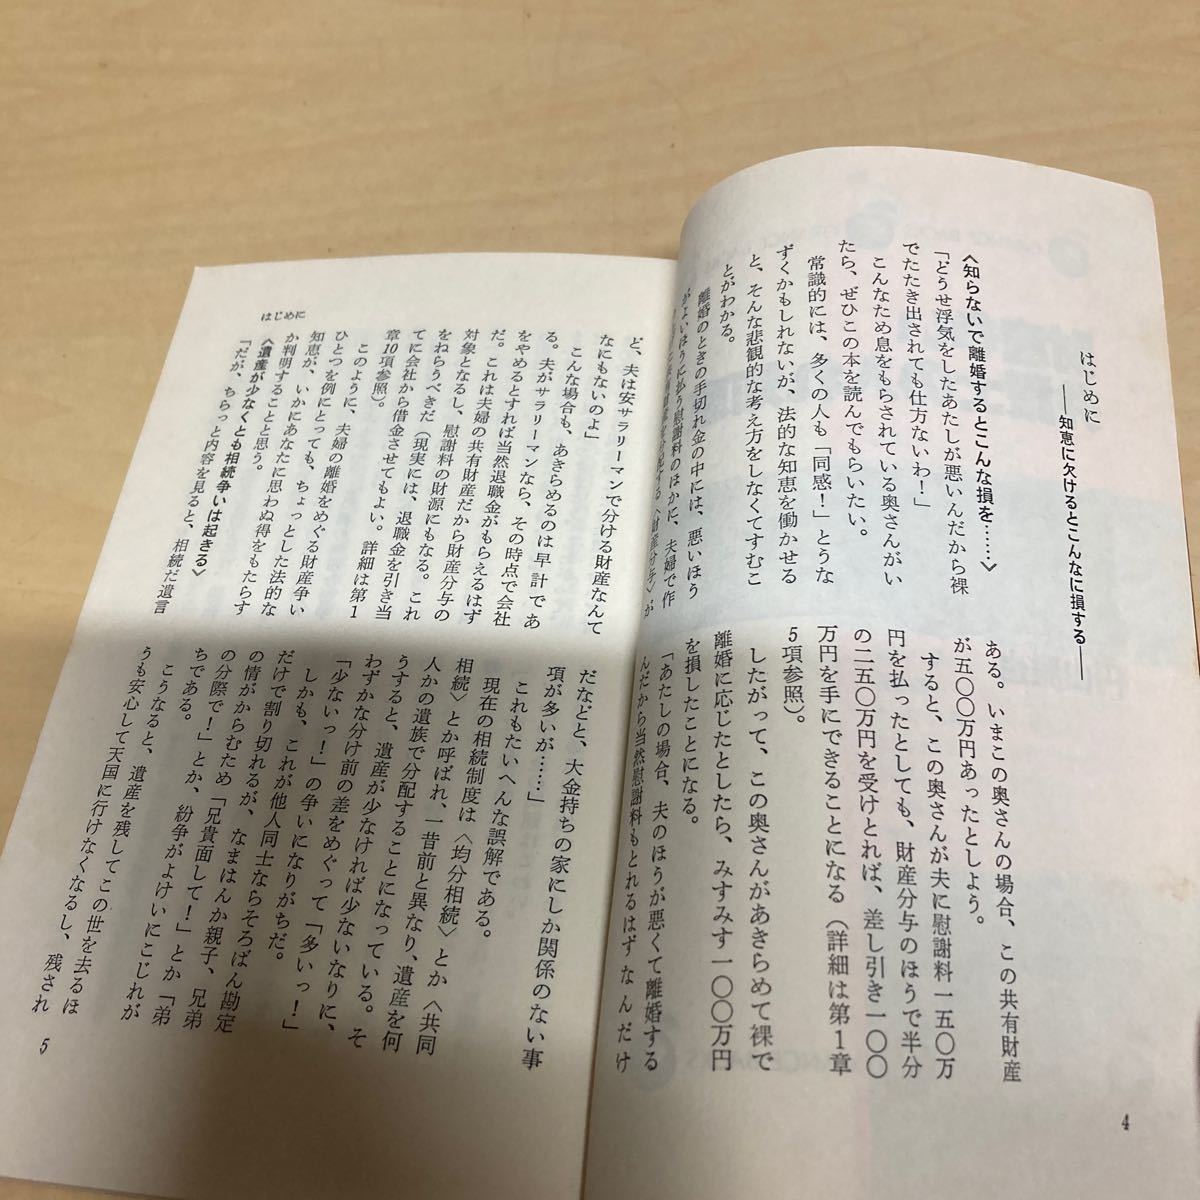 はじめに
――知恵に欠けるとこんなに損する――
〈知らないで離婚するとこんな損を……〉
「どうせ浮気をしたあたしが悪いんだから裸
でたたき出されても仕方ないわ！」
こんなため息をもらされている奥さんがい
たら、ぜひこの本を読んでもらいたい。
常識的には、多くの人も「同感！」とうな
ずくかもしれないが、法的な知恵を働かせる
と、そんな悲観的な考え方をしなくてすむこ
とがわかる。
離婚のときの手切れ金の中には、悪いほう
がよいほうに払う慰謝料のほかに、夫婦で作
〈財産分与〉が
ある。いまこの奥さんの場合、この共有財産
が五〇〇万円あったとしよう。
すると、この奥さんが夫に慰謝料一五〇万
円を払ったとしても、財産分与のほうで半分
の二五〇万円を受けとれば、差し引き一〇〇
万円を手にできることになる（詳細は第1章
5項参照）。
したがって、この奥さんがあきらめて裸で
離婚に応じたとしたら、みすみす一〇〇万円
を損したことになる。
「あたしの場合、夫のほうが悪くて離婚する
んだから当然慰謝料もとれるはずなんだけ
4
はじめに
ど、夫は安サラリーマンで分ける財産なんて
なにもないのよ」
こんな場合も、あきらめるのは早計であ
る。夫がサラリーマンなら、その時点で会社
をやめるとすれば当然退職金がもらえるはず
だ。これは夫婦の共有財産だから財産分与の
対象となるし、慰謝料の財源にもなる。これ
をねらうべきだ（現実には、退職金を引き当
てに会社から借金させてもよい。詳細は第1
章10項参照）。
このように、夫婦の離婚をめぐる財産争い
ひとつを例にとっても、ちょっとした法的な
知恵が、いかにあなたに思わぬ得をもたらす
か判明することと思う。
〈遺産が少なくとも相続争いは起きる〉
「だが、ちらっと内容を見ると、相続だ遺言
だなどと、大金持ちの家にしか関係のない事
項が多いが……」
これもたいへんな誤解である。
現在の相続制度は〈均分相続〉とか〈共同
相続〉とか呼ばれ、一昔前と異なり、遺産を何
人かの遺族で分配することになっている。そ
うすると、遺産が少なければ少ないなりに、
わずかな分け前の差をめぐって「多いっ！」
「少ないっ！」の争いになりがちだ。
しかも、これが他人同士ならそろばん勘定
だけで割り切れるが、なまはんか親子、兄弟
の情がからむため「兄貴面して！」とか「弟
の分際で！」とか、紛争がよけいにこじれが
ちである。
こうなると、遺産を残してこの世を去るほ
うも安心して天国に行けなくなるし、残され
5